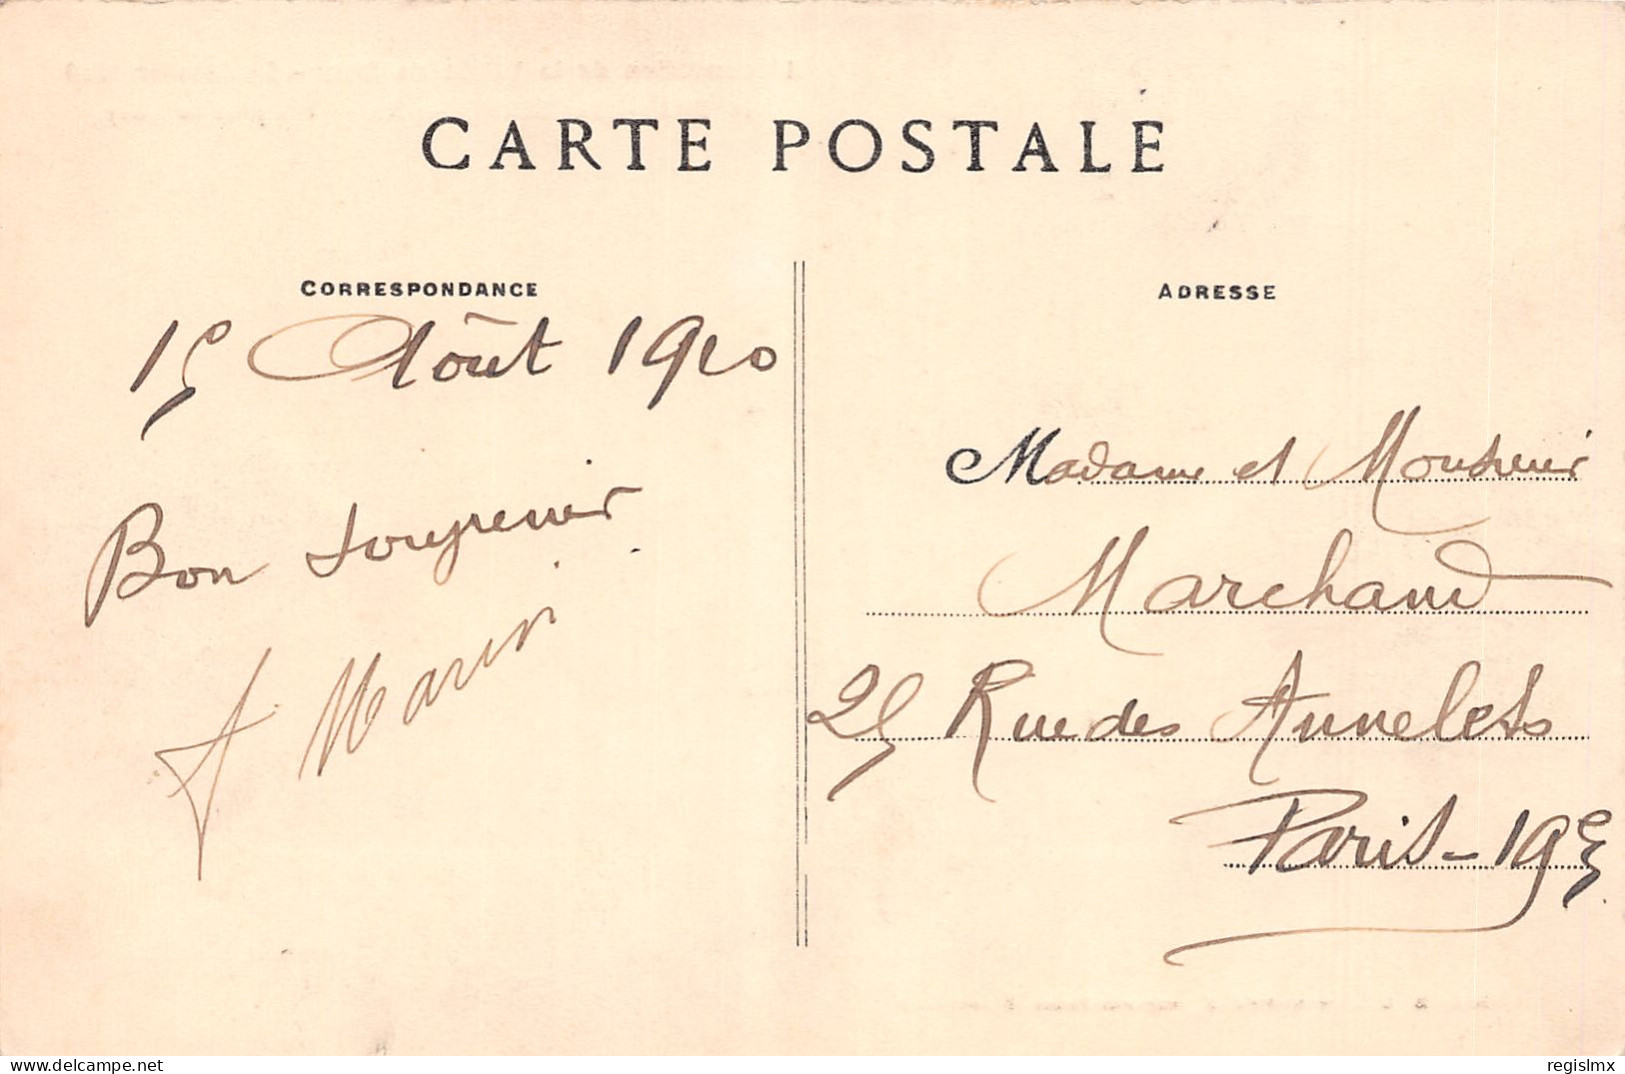 CARTE POSTALE
CORRESPONDANCE
15 Août 1910
Bon souvenir
A Marin
ADRESSE
Madame et Monsieur
Marchand
25 Rue des Annelets
Paris - 19e
regislmx